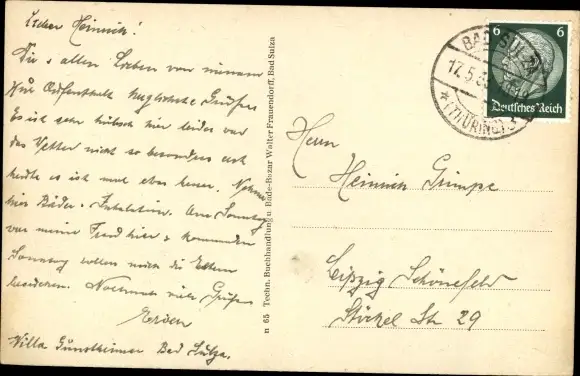 Lieber Heinrich!
Dir u. allen Lieben von meinem
Kur Aufenthalt herzlichste Grüße
Es ist sehr hübsch hier leider war
das Wetter nicht so besonders erst
heute es ist mal etwas Nehme
hier Bäder u. Inhalation. Am Sonntag
war meine hier u. kommenden
Sonntag wollen mich die Eltern
besuchen. Nochmals viele Grüße
Villa Bad Sulza.
n 65 Techn. Buchhandlung u. Bäde-Bazar Walter Frauendorff, Bad Sulza
BAD SULZA
17.5.
(THÜRING)
6 6
Deutsches Reich
Herrn
Heinrich Grimpe
Leipzig Schönefeld
Stöckel Str 29